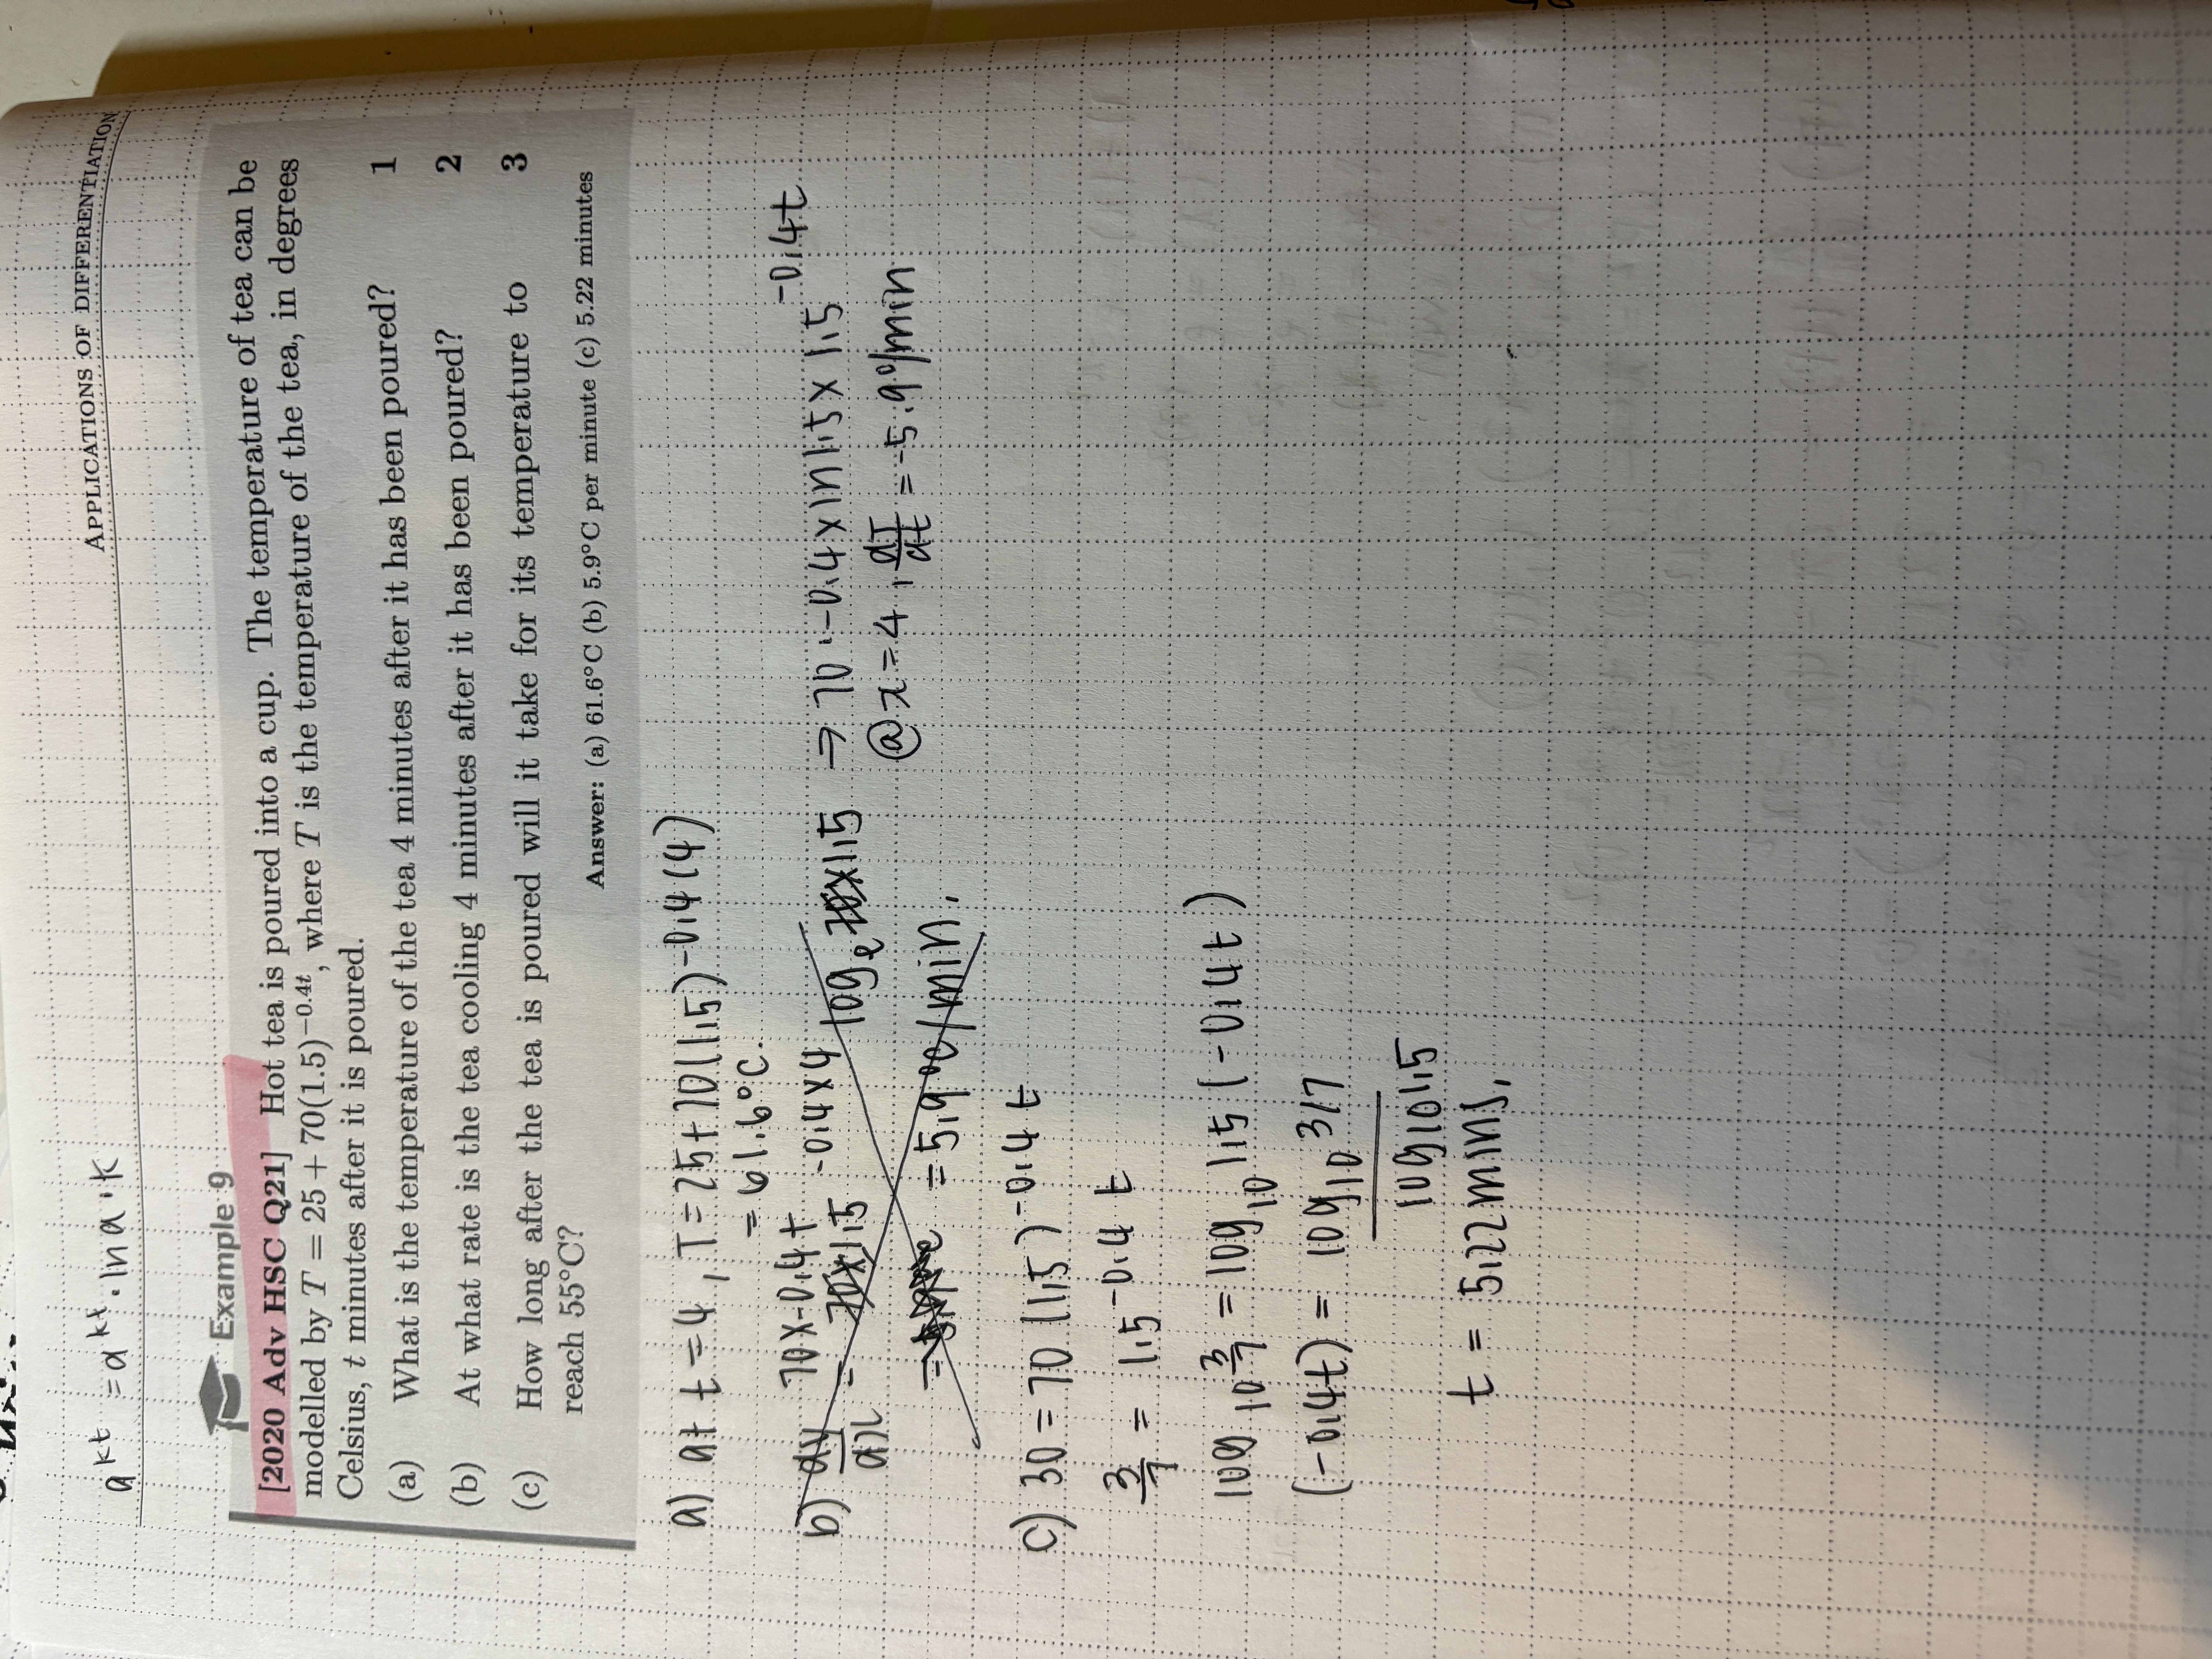 a^kt = a^kt . ln a . k
APPLICATIONS OF DIFFERENTIATION
Example 9
[2020 Adv HSC Q21] Hot tea is poured into a cup. The temperature of tea can be
modelled by T = 25 + 70(1.5)^−0.4t, where T is the temperature of the tea, in degrees
Celsius, t minutes after it is poured.
(a) What is the temperature of the tea 4 minutes after it has been poured? 1
(b) At what rate is the tea cooling 4 minutes after it has been poured? 2
(c) How long after the tea is poured will it take for its temperature to 3
reach 55°C?
Answer: (a) 61.6°C (b) 5.9°C per minute (c) 5.22 minutes
a) at t = 4, T = 25 + 70(1.5)^-0.4(4)
= 61.6°C.
b) dy/dx = 70x-0.4t 1.5^-0.4x4 log e 1.5 ⇒ 70 . -0.4 x ln 1.5 x 1.5^-0.4t
= 5.9 °C/min. @ x = 4, dT/dt = -5.9°/min
c) 30 = 70 (1.5)^-0.4t
3/7 = 1.5^-0.4t
log 10 3/7 = log 10 1.5 (-0.4t)
(-0.4t) = log 10 3/7
log 10 1.5
t = 5.22 mins.